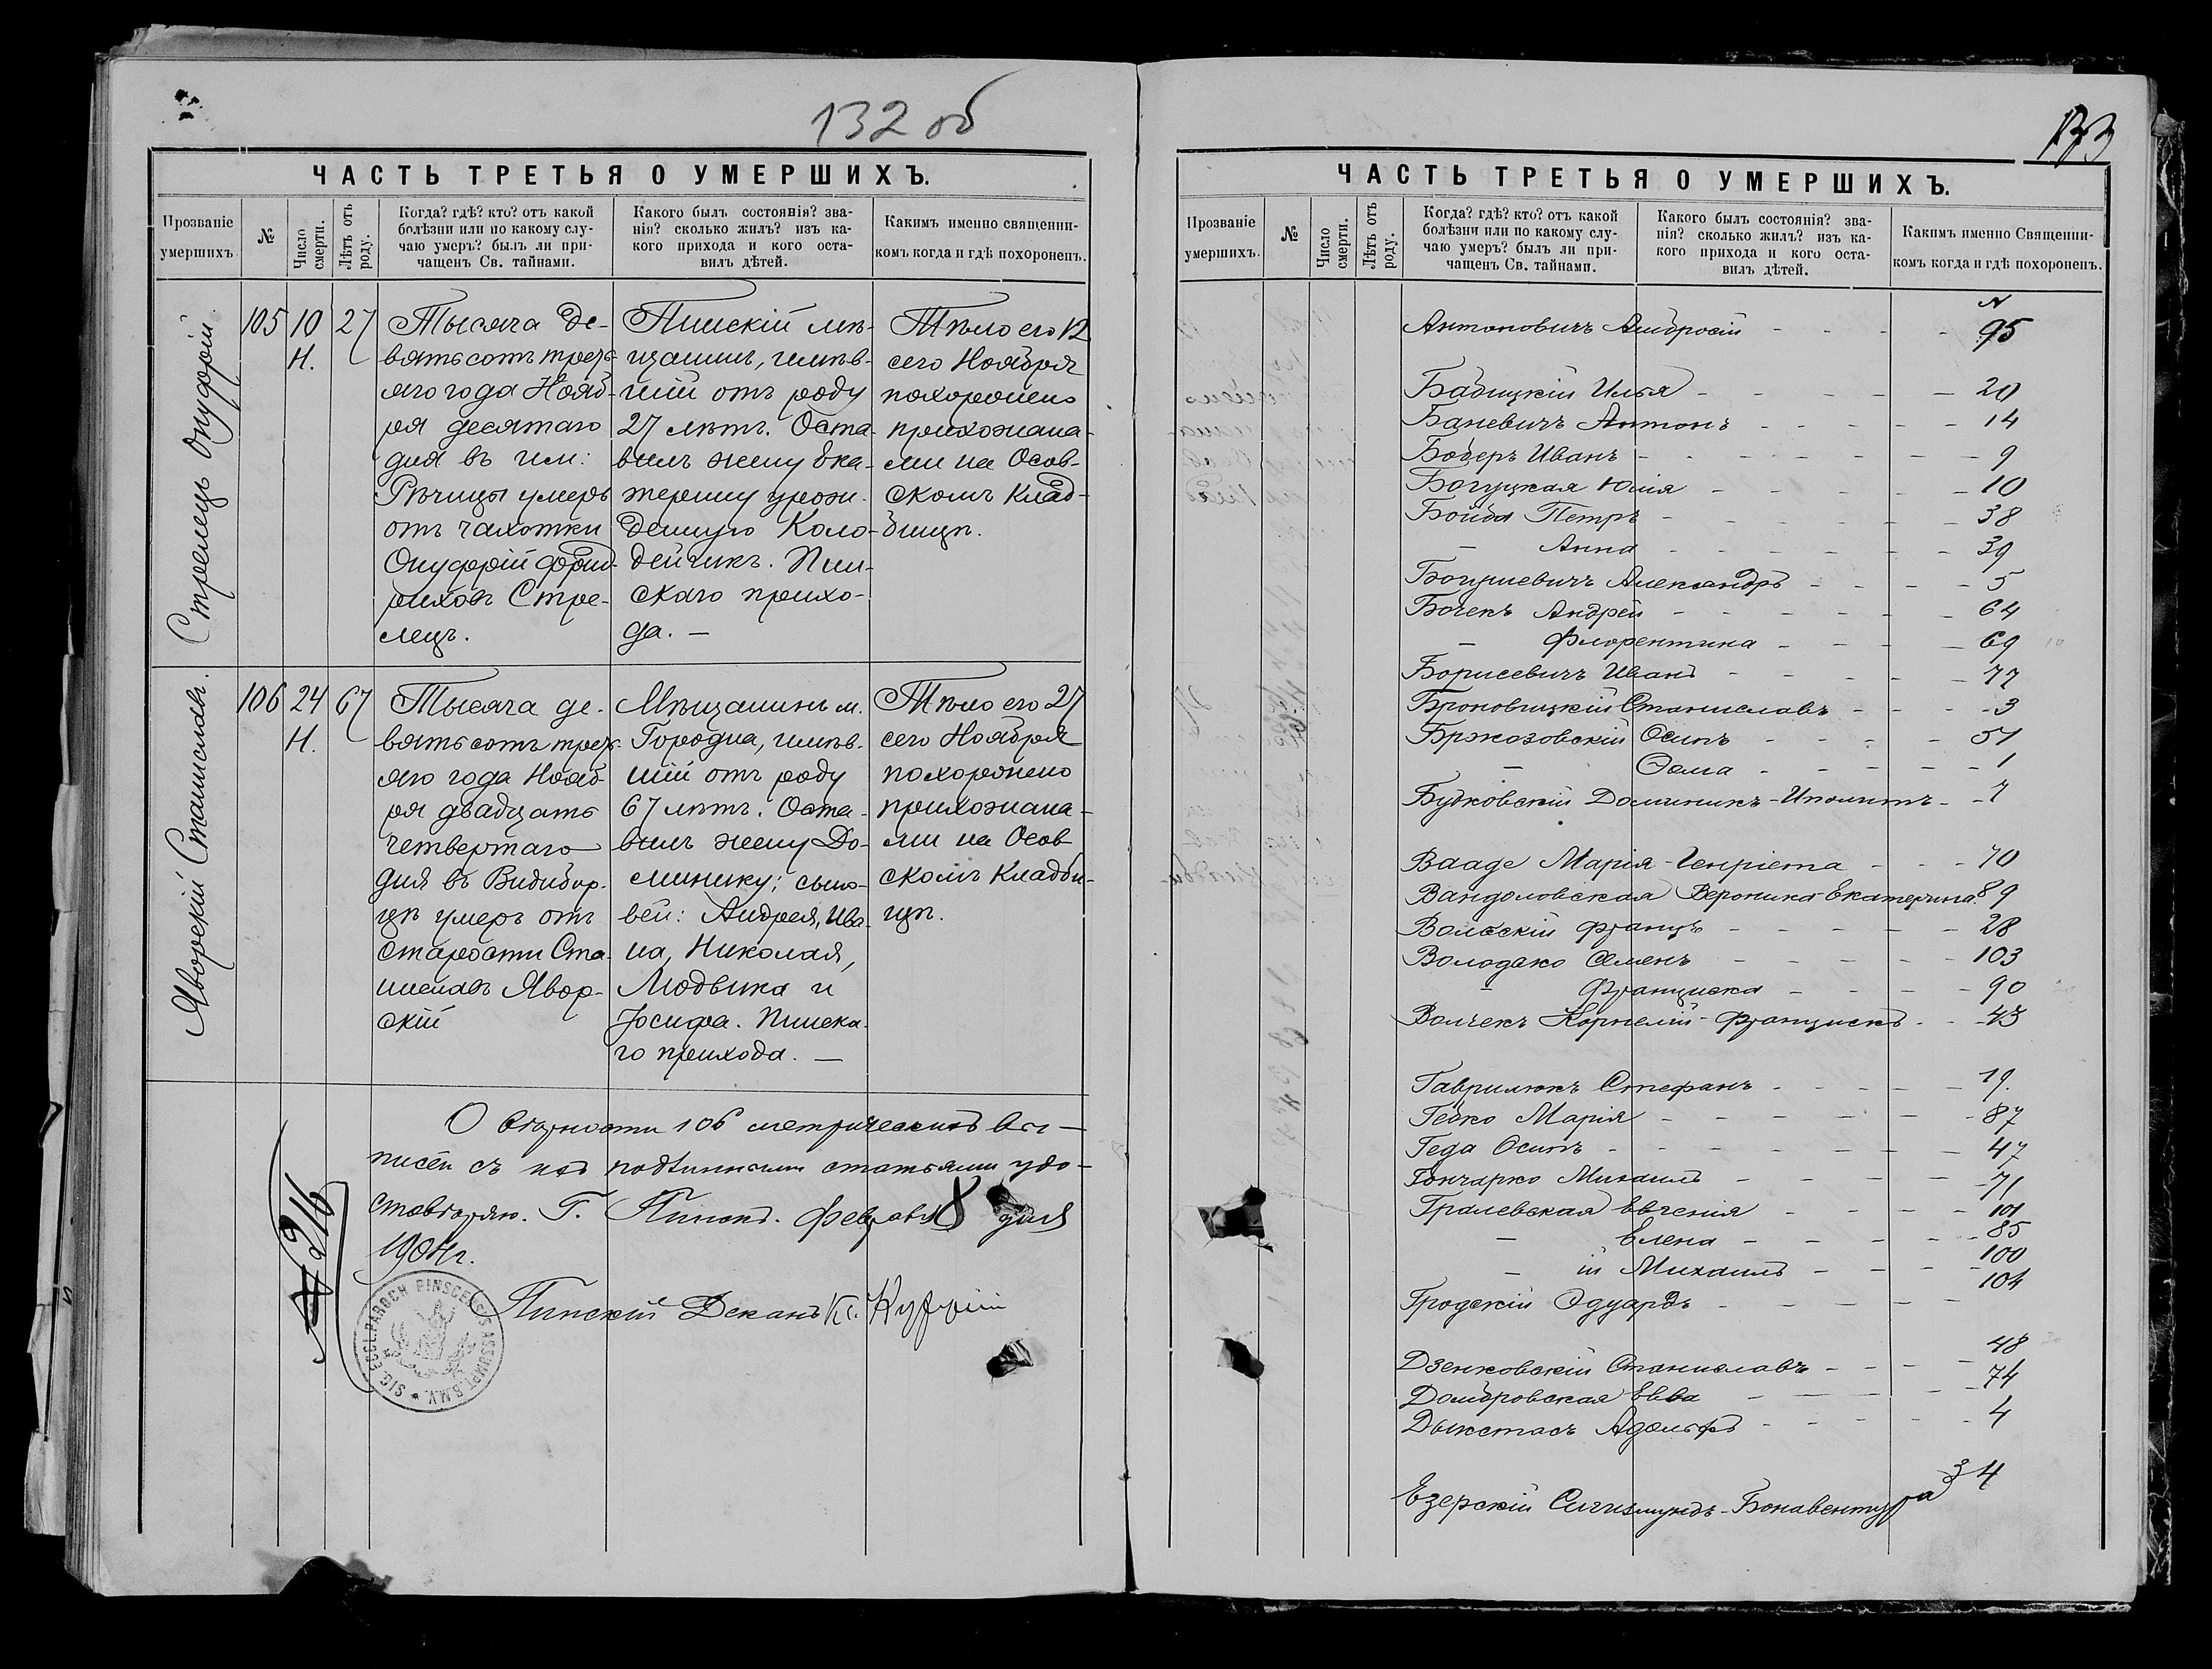 132 об
ЧАСТЬ ТРЕТЬЯ О УМЕРШИХЪ.
Прозваніе
умершихъ
№
Число
смерти.
Лѣтъ отъ
роду.
Когда? гдѣ? кто? отъ какой
болѣзни или по какому слу-
чаю умеръ? былъ ли при-
чащенъ Св. тайнами.
Какого былъ состоянія? зва-
нія? сколько жилъ? изъ ка-
кого прихода и кого оста-
вилъ дѣтей.
Какимъ именно священни-
комъ когда и гдѣ похороненъ.
Стрелецъ Онуфрій.
105
10
Н.
27
Тысяча де-
вятьсотъ треть-
яго года Нояб-
ря десятаго
дня въ им:
Рѣчицы умеръ
отъ чахотки
Онуфрій
Стре-
лецъ.
Пинскій мѣ-
щанинъ, имѣв-
шій отъ роду
27 лѣтъ. Оста-
вилъ жену Ека-
терину урож-
денную Коло-
дейчикъ. Пин-
скаго прихо-
да. —
Тѣло его 12
сего Ноября
похоронено
прихожана-
ми на Осов-
скомъ Клад-
бищѣ.
Яворскій Станиславъ.
106
24
Н.
67
Тысяча де-
вятьсотъ треть-
яго года Нояб-
ря двадцать
четвертаго
дня въ Видибор-
цѣ умеръ отъ
старости Ста-
ниславъ Явор-
скій
Мѣщанинъ м.
Городна, имѣв-
шій отъ роду
67 лѣтъ. Оста-
вилъ жену До-
минику; сыно-
вей: Андрея, Ива-
на, Николая,
Людвика и
Іосифа. Пинска-
го прихода. —
Тѣло его 27
сего Ноября
похоронено
прихожана-
ми на Осов-
скомъ Кладби-
щѣ.
О вѣрности 106 метрическихъ вы-
писей съ подлинными статьями удо-
стовѣряю. Г. Пинскъ. Февраля 8 дня
1904 г.
№ 216
Пинскій Деканъ Кс.
SIG. ECCL. PAROCH PINSCENSIS ASSUMPT. B.M.V.
133
ЧАСТЬ ТРЕТЬЯ О УМЕРШИХЪ.
Прозваніе
умершихъ.
№
Число
смерти.
Лѣтъ отъ
роду.
Когда? гдѣ? кто? отъ какой
болѣзни или по какому слу-
чаю умеръ? былъ ли при-
чащенъ Св. тайнами.
Какого былъ состоянія? зва-
нія? сколько жилъ? изъ ка-
кого прихода и кого оста-
вилъ дѣтей.
Какимъ именно Священни-
комъ когда и гдѣ похороненъ.
№
Антоновичъ Амбросій - - - 95
Бабицкій Илья - - - - 20
Баневичъ Антонъ - - - - 14
Бодеръ Иванъ - - - - 9
Богуцкая Юлія - - - - 10
Бойда Петръ - - - - 38
— Анна - - - - 39
Богушевичъ Александръ - - - 5
Бочекъ Андрей - - - - 64
— Флорентина - - - 69
Борисевичъ Иванъ - - - - 77
Броновицкій Станиславъ - - - 3
Бржозовскій Осипъ - - - - 51
— - - - - 1
Будковскій Доминикъ-Иполитъ - - 7
Вааде Марія-Генріета - - - 70
Вандоловская Вероника Екатерина 89
Вольскій Францъ - - - - 28
Володзко Семенъ - - - - 103
— Франциска - - - 90
Волчекъ Корнелій-Францискъ - - 43
Гаврилюкъ Стефанъ - - - - 19.
Гедко Марія - - - - 87
Геда Осипъ - - - - 47
Гончарко Михаилъ - - - - 71
Гралевская Евгенія - - - - 101
— Елена - - - - 85
— ій Михаилъ - - - - 100
Гродзкій Эдуардъ - - - - 104
Дзенковскій Станиславъ - - - 48
Домбровская Евва - - - - 74
Дыкстасъ Адольфъ - - - - 4
Езерскій Сигизмундъ-Бонавентура 34